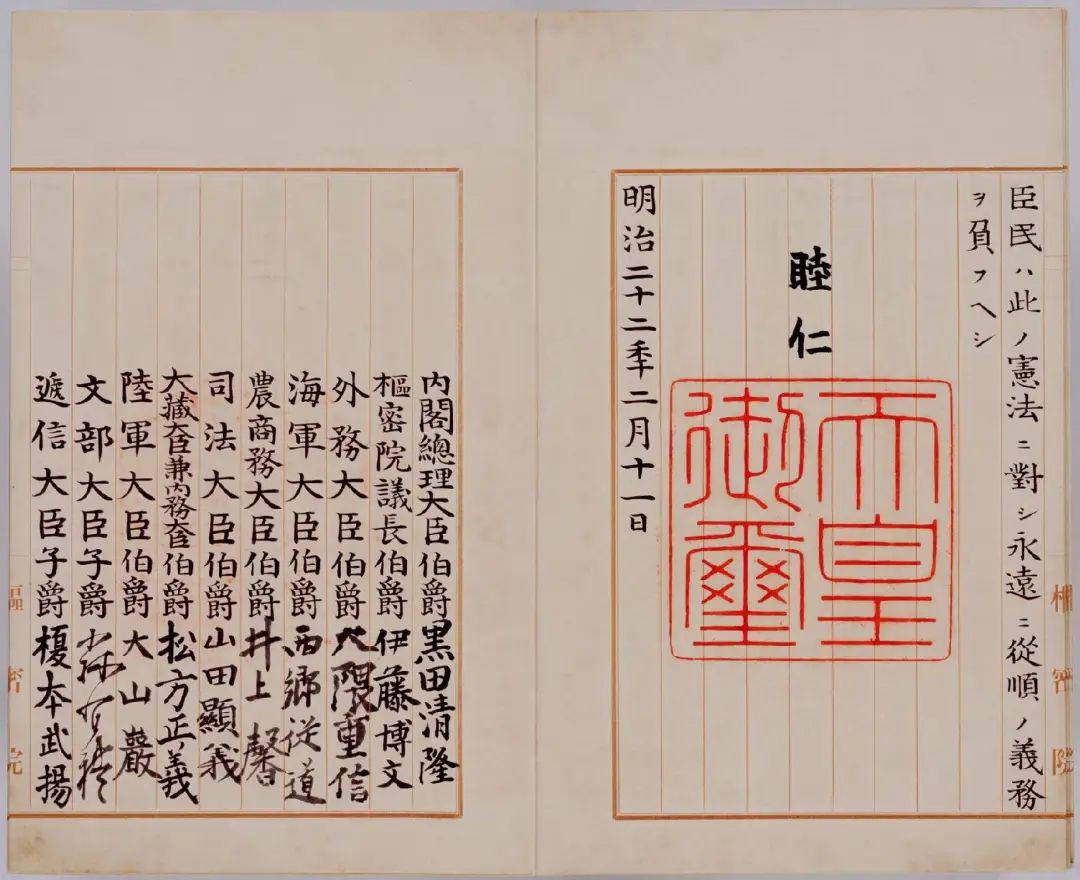 臣民ハ此ノ憲法ニ對シ永遠ニ從順ノ義務
ヲ負フヘシ
睦仁
天皇
御璽
明治二十二季二月十一日
內閣總理大臣伯爵黑田清隆
樞密院議長伯爵伊藤博文
外務大臣伯爵大隈重信
海軍大臣伯爵西鄉從道
農商務大臣伯爵井上馨
司法大臣伯爵山田顯義
大藏大臣兼內務大臣伯爵松方正義
陸軍大臣伯爵大山巖
文部大臣子爵森有禮
遞信大臣子爵榎本武揚
樞密院